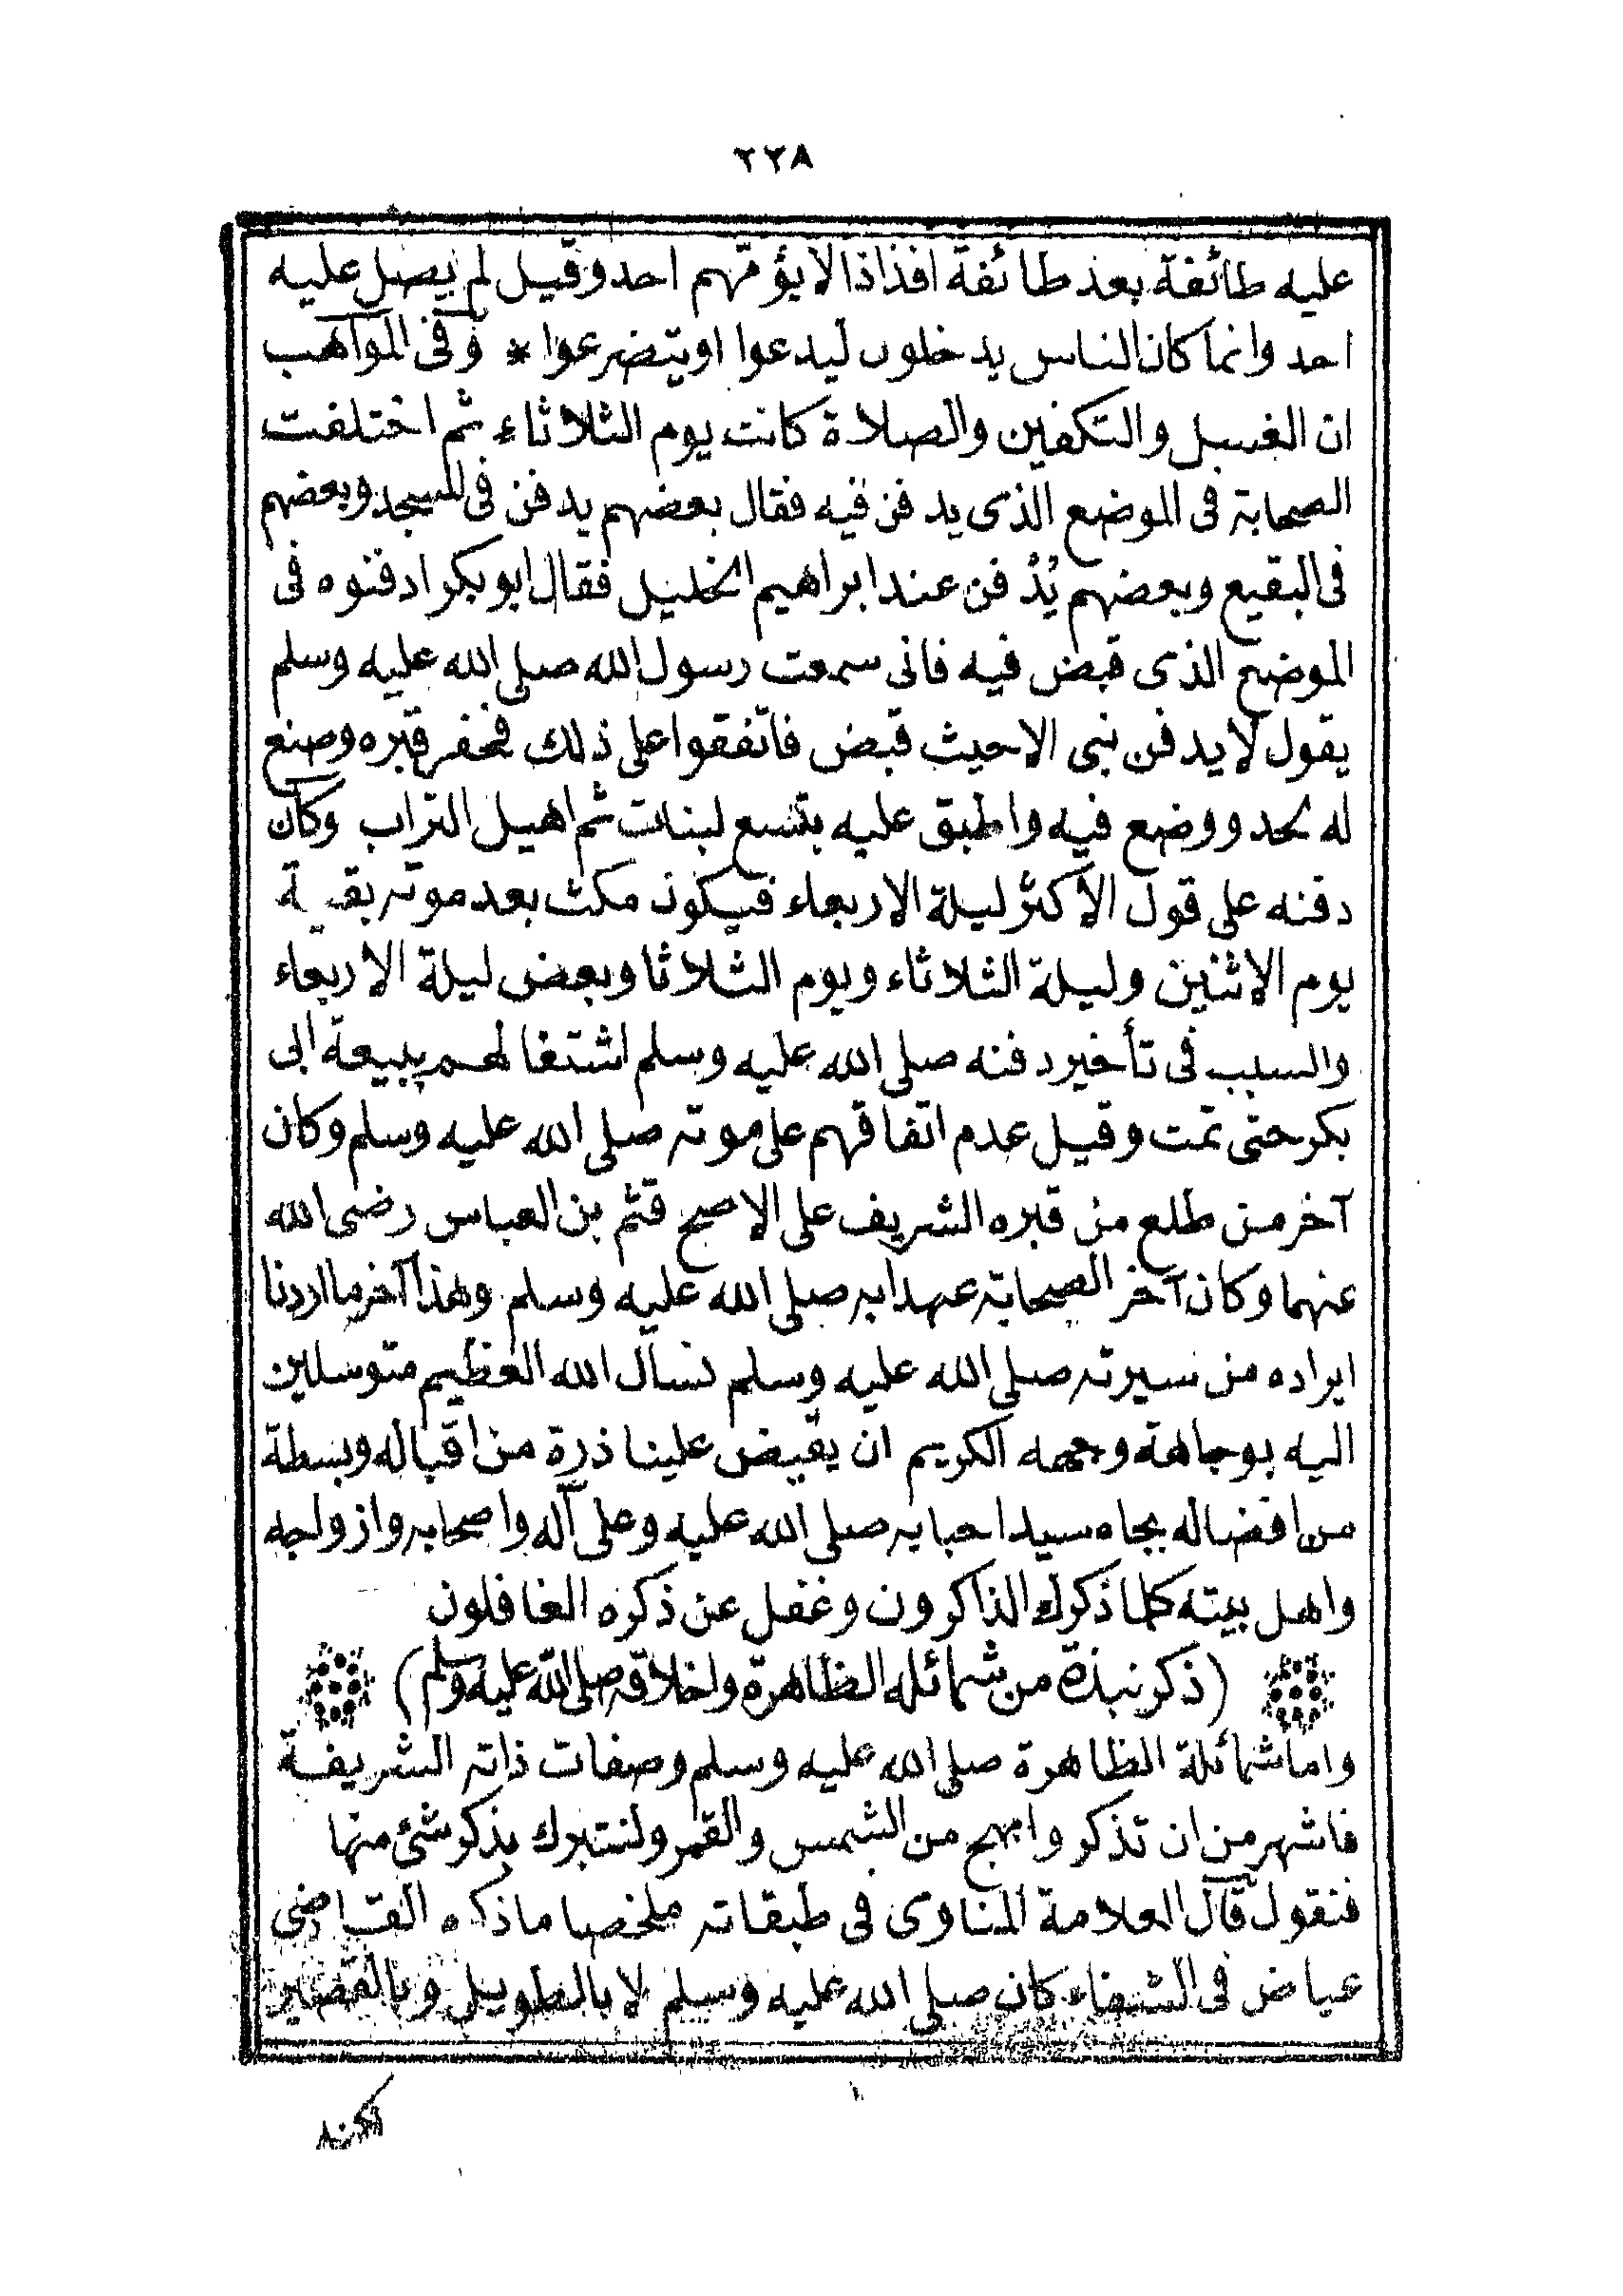 ٢٢٨
عليه طائفة بعد طائفة افذاذا لا يؤمّهم احد وقيل لم يصل عليه
احد وانما كان الناس يدخلون ليدعوا اويتضرعوا * وفى المواهب
ان الغسل والتكفين والصلاة كانت يوم الثلاثاء ثم اختلفت
الصحابة فى الموضع الذى يدفن فيه فقال بعضهم يدفن فى المسجد وبعضهم
فى البقيع وبعضهم يُدْفن عند ابراهيم الخليل فقال ابو بكر ادفنوه فى
الموضع الذى قبض فيه فانى سمعت رسول الله صلى الله عليه وسلم
يقول لا يدفن نبى الاحيث قبض فاتفقوا على ذلك فحفر قبره وصنع
له لحد ووضع فيه واطبق عليه بتسع لبنات ثم اهيل التراب وكان
دفنه على قول الأكثر ليلة الاربعاء فيكون مكث بعد موته بقية
يوم الاثنين وليلة الثلاثاء ويوم الثلاثا وبعض ليلة الاربعاء
والسبب فى تأخير دفنه صلى الله عليه وسلم اشتغالهم ببيعة ابى
بكر حتى تمت وقيل عدم اتفاقهم على موته صلى الله عليه وسلم وكان
آخر من طلع من قبره الشريف على الاصح قثم بن العباس رضى الله
عنهما وكان آخر الصحابة عهدا به صلى الله عليه وسلم وهذا آخر ما اردنا
ايراده من سيرته صلى الله عليه وسلم نسأل الله العظيم متوسلين
اليه بوجاهة وجهه الكريم ان يفيض علينا ذرة من اقباله وبسطة
من افضاله بجاه سيد احبابه صلى الله عليه وعلى آله واصحابه وازواجه
واهل بيته كلما ذكرك الذاكرون وغفل عن ذكره الغافلون
(ذكر نبذة من شمائله الظاهرة واخلاقه صلى الله عليه وسلم)
واما شمائلة الظاهرة صلى الله عليه وسلم وصفات ذاته الشريفة
فاشهر من ان تذكر وابهج من الشمس والقمر ولنتبرك بذكر شئ منها
فنقول قال العلامة المناوى فى طبقاته ملخصا ما ذكره القاضى
عياض فى الشفاء كان صلى الله عليه وسلم لا بالطويل ولا بالقصير